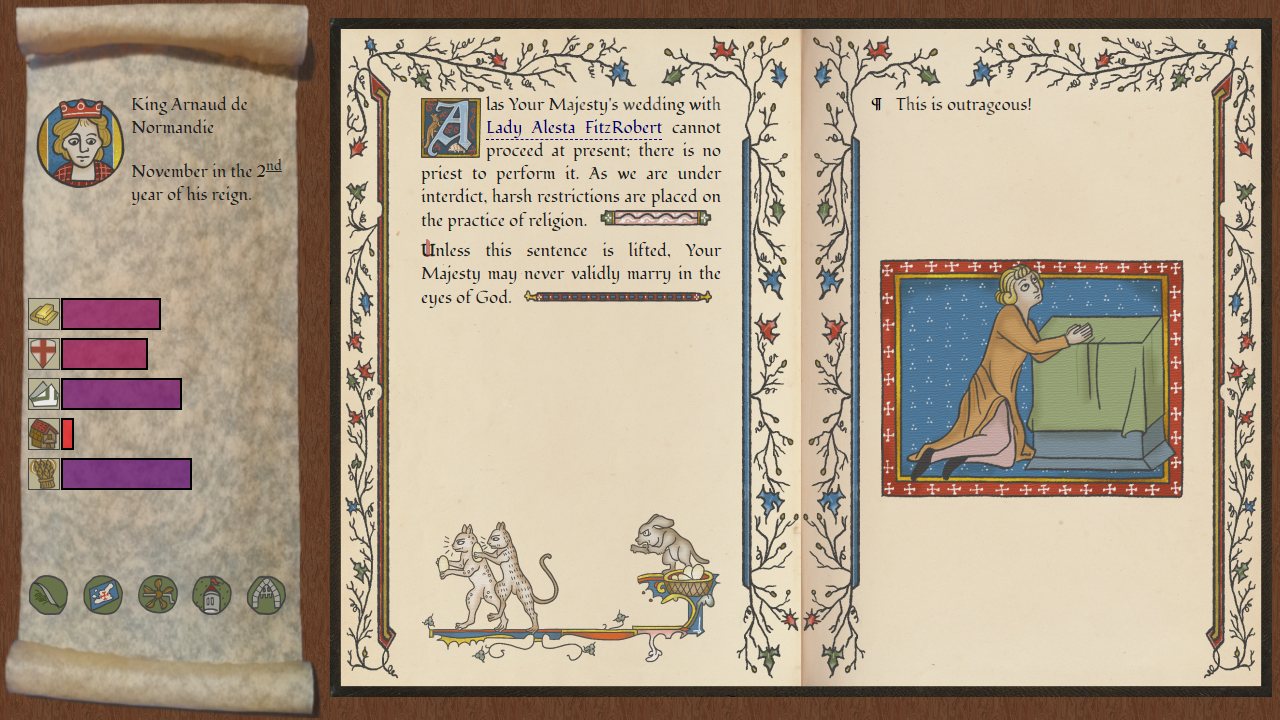 King Arnaud de
Normandie
November in the 2nd
year of his reign.
Alas Your Majesty's wedding with
Lady Alesta FitzRobert cannot
proceed at present; there is no
priest to perform it. As we are under
interdict, harsh restrictions are placed on
the practice of religion.
Unless this sentence is lifted, Your
Majesty may never validly marry in the
eyes of God.
¶ This is outrageous!